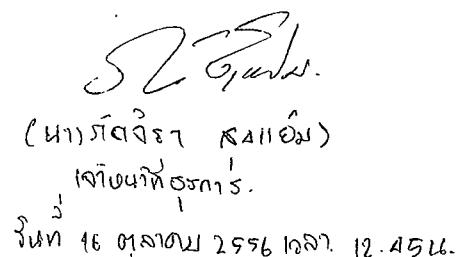 (นางภัตจิรา สุขแย้ม)
เจ้าหน้าที่ธุรการ.
วันที่ 16 ตุลาคม 2556 เวลา. 12.45น.